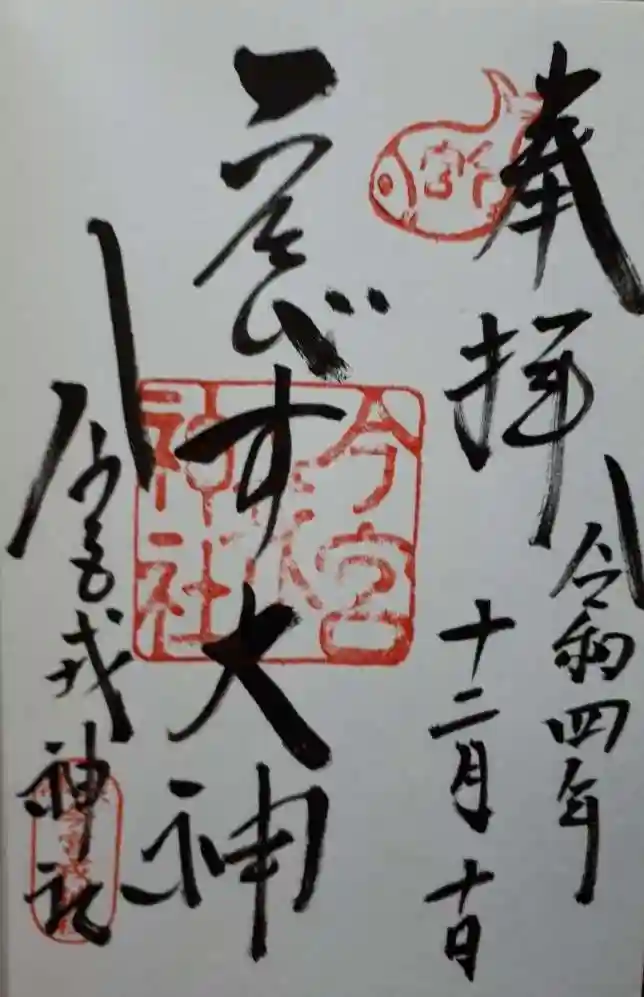 奉拝
令和四年
十二月十日
今宮
ゑびす大神
今宮戎神社
今宮戎神社